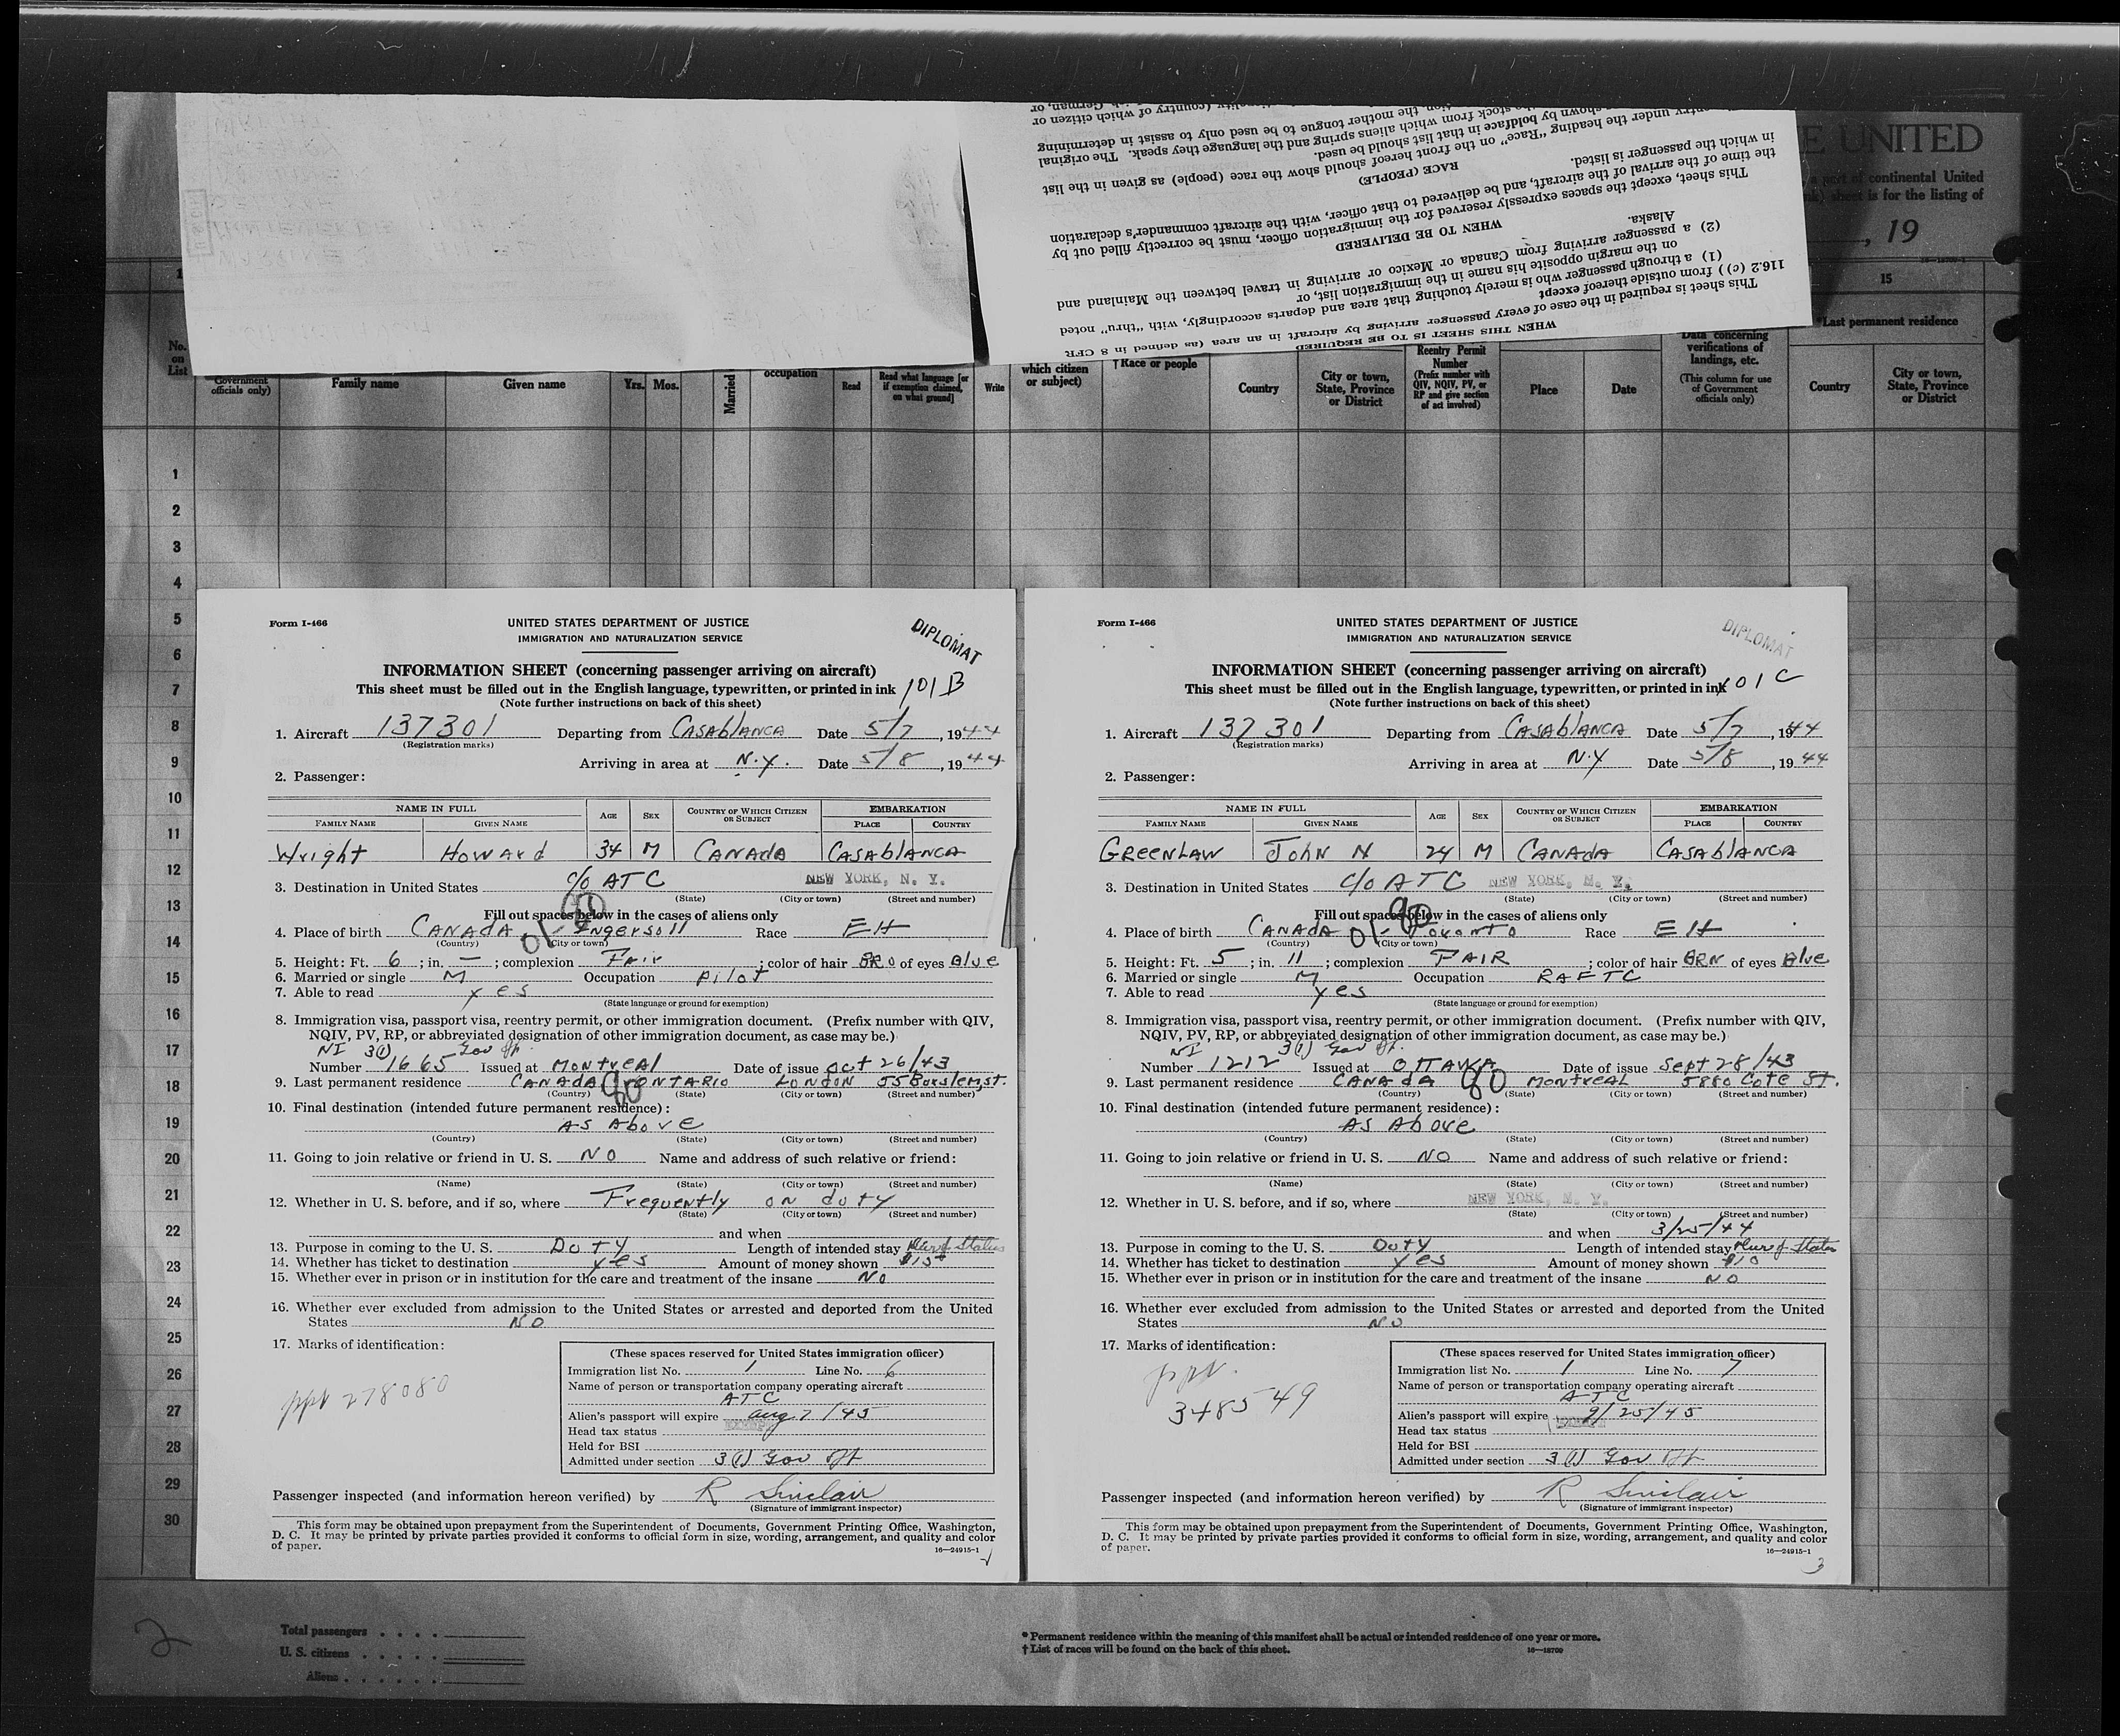 E UNITED
a part of continental United
sheet is for the listing of
, 19
15
in which the passenger is listed.
entry under the heading "Race" on the front hereof should show the race (people) as given in the list
shown by boldface in that list should be used.
stock from which aliens spring and the language they speak. The original
the mother tongue to be used only to assist in determining
(country of which citizen or
RACE (PEOPLE)
This sheet, except the spaces expressly reserved for the immigration officer, must be correctly filled out by
the time of the arrival of the aircraft, and be delivered to that officer, with the aircraft commander's declaration
WHEN TO BE DELIVERED
Alaska.
(2) a passenger arriving from Canada or Mexico or arriving in travel between the Mainland and
on the margin opposite his name in the immigration list, or
(1) a through passenger who is merely touching that area and departs accordingly, with "thru" noted
116.2 (c)) from outside thereof except
This sheet is required in the case of every passenger arriving by aircraft in an area (as defined in 8 CFR
WHEN THIS SHEET IS TO BE REQUIRED
No. on List
Government officials only)
Family name
Given name
Yrs.
Mos.
Married
occupation
Read
Read what language [or if exemption claimed, on what ground]
Write
which citizen or subject)
†Race or people
Country
City or town, State, Province or District
Reentry Permit Number (Prefix number with QIV, NQIV, PV, or RP and give section of act involved)
Place
Date
Data concerning verifications of landings, etc.
(This column for use of Government officials only)
*Last permanent residence
Country
City or town, State, Province or District
1
2
3
4
5
6
7
8
9
10
11
12
13
14
15
16
17
18
19
20
21
22
23
24
25
26
27
28
29
30
Form I-466
UNITED STATES DEPARTMENT OF JUSTICE
IMMIGRATION AND NATURALIZATION SERVICE
DIPLOMAT
INFORMATION SHEET (concerning passenger arriving on aircraft)
This sheet must be filled out in the English language, typewritten, or printed in ink 101 B
(Note further instructions on back of this sheet)
1. Aircraft 137301 Departing from CASAblANCA Date 5/7, 1944
(Registration marks)
Arriving in area at N.Y. Date 5/8, 1944
2. Passenger:
NAME IN FULL AGE SEX COUNTRY OF WHICH CITIZEN OR SUBJECT EMBARKATION
FAMILY NAME GIVEN NAME PLACE COUNTRY
Wright Howard 34 M CANADA CASAblANCA
3. Destination in United States C/O ATC NEW YORK, N. Y.
(State) (City or town) (Street and number)
Fill out spaces below in the cases of aliens only
4. Place of birth CANADA 01- Ingersoll Race EH
(Country) (City or town)
5. Height: Ft. 6; in. —; complexion Fair; color of hair BRO of eyes Blue
6. Married or single M Occupation Pilot
7. Able to read yes
(State language or ground for exemption)
8. Immigration visa, passport visa, reentry permit, or other immigration document. (Prefix number with QIV,
NQIV, PV, RP, or abbreviated designation of other immigration document, as case may be.)
NI 3(1) Gov Off.
Number 1665 Issued at Montreal Date of issue Oct 26/43
9. Last permanent residence CANADA 90 ONTARIO LONDON 55 Burslem st.
(Country) (State) (City or town) (Street and number)
10. Final destination (intended future permanent residence):
AS Above
(Country) (State) (City or town) (Street and number)
11. Going to join relative or friend in U. S. NO Name and address of such relative or friend:
(Name) (State) (City or town) (Street and number)
12. Whether in U. S. before, and if so, where Frequently on duty
(State) (City or town) (Street and number)
and when
13. Purpose in coming to the U. S. DUTY Length of intended stay Dur of Status
14. Whether has ticket to destination yes Amount of money shown
15. Whether ever in prison or in institution for the care and treatment of the insane NO
16. Whether ever excluded from admission to the United States or arrested and deported from the United
States NO
17. Marks of identification:
ppt 278080
(These spaces reserved for United States immigration officer)
Immigration list No. 1 Line No. 6
Name of person or transportation company operating aircraft
ATC
Alien's passport will expire Aug 7/45
Head tax status
Held for BSI
Admitted under section 3(1) Gov Off
Passenger inspected (and information hereon verified) by R Sinclair
(Signature of immigrant inspector)
This form may be obtained upon prepayment from the Superintendent of Documents, Government Printing Office, Washington,
D. C. It may be printed by private parties provided it conforms to official form in size, wording, arrangement, and quality and color
of paper.
16—24915-1
Form I-466
UNITED STATES DEPARTMENT OF JUSTICE
IMMIGRATION AND NATURALIZATION SERVICE
DIPLOMAT
INFORMATION SHEET (concerning passenger arriving on aircraft)
This sheet must be filled out in the English language, typewritten, or printed in ink 101 C
(Note further instructions on back of this sheet)
1. Aircraft 137301 Departing from CASAblANCA Date 5/7, 1944
(Registration marks)
Arriving in area at N.Y Date 5/8, 1944
2. Passenger:
NAME IN FULL AGE SEX COUNTRY OF WHICH CITIZEN OR SUBJECT EMBARKATION
FAMILY NAME GIVEN NAME PLACE COUNTRY
GREENLAW JOHN N 24 M CANADA CASAblANCA
3. Destination in United States C/O ATC NEW YORK, N. Y.
(State) (City or town) (Street and number)
Fill out spaces below in the cases of aliens only
4. Place of birth CANADA 01- Toronto Race EH
(Country) (City or town)
5. Height: Ft. 5; in. 11; complexion FAIR; color of hair BRN of eyes Blue
6. Married or single M Occupation RAFTC
7. Able to read yes
(State language or ground for exemption)
8. Immigration visa, passport visa, reentry permit, or other immigration document. (Prefix number with QIV,
NQIV, PV, RP, or abbreviated designation of other immigration document, as case may be.)
NI 3(1) Gov Off.
Number 1212 Issued at OTTAWA Date of issue Sept 28/43
9. Last permanent residence CANADA 90 Montreal 5880 Cote St.
(Country) (State) (City or town) (Street and number)
10. Final destination (intended future permanent residence):
AS Above
(Country) (State) (City or town) (Street and number)
11. Going to join relative or friend in U. S. NO Name and address of such relative or friend:
(Name) (State) (City or town) (Street and number)
12. Whether in U. S. before, and if so, where NEW YORK, N. Y.
(State) (City or town) (Street and number)
and when 3/25/44
13. Purpose in coming to the U. S. DUTY Length of intended stay Dur of Status
14. Whether has ticket to destination yes Amount of money shown $10
15. Whether ever in prison or in institution for the care and treatment of the insane NO
16. Whether ever excluded from admission to the United States or arrested and deported from the United
States NO
17. Marks of identification:
ppt.
348549
(These spaces reserved for United States immigration officer)
Immigration list No. 1 Line No. 7
Name of person or transportation company operating aircraft
ATC
Alien's passport will expire 9/25/45
Head tax status
Held for BSI
Admitted under section 3(1) Gov Off
Passenger inspected (and information hereon verified) by R Sinclair
(Signature of immigrant inspector)
This form may be obtained upon prepayment from the Superintendent of Documents, Government Printing Office, Washington,
D. C. It may be printed by private parties provided it conforms to official form in size, wording, arrangement, and quality and color
of paper.
16—24915-1
3
2
Total passengers
U. S. citizens
Aliens
* Permanent residence within the meaning of this manifest shall be actual or intended residence of one year or more.
† List of races will be found on the back of this sheet.
16—18709